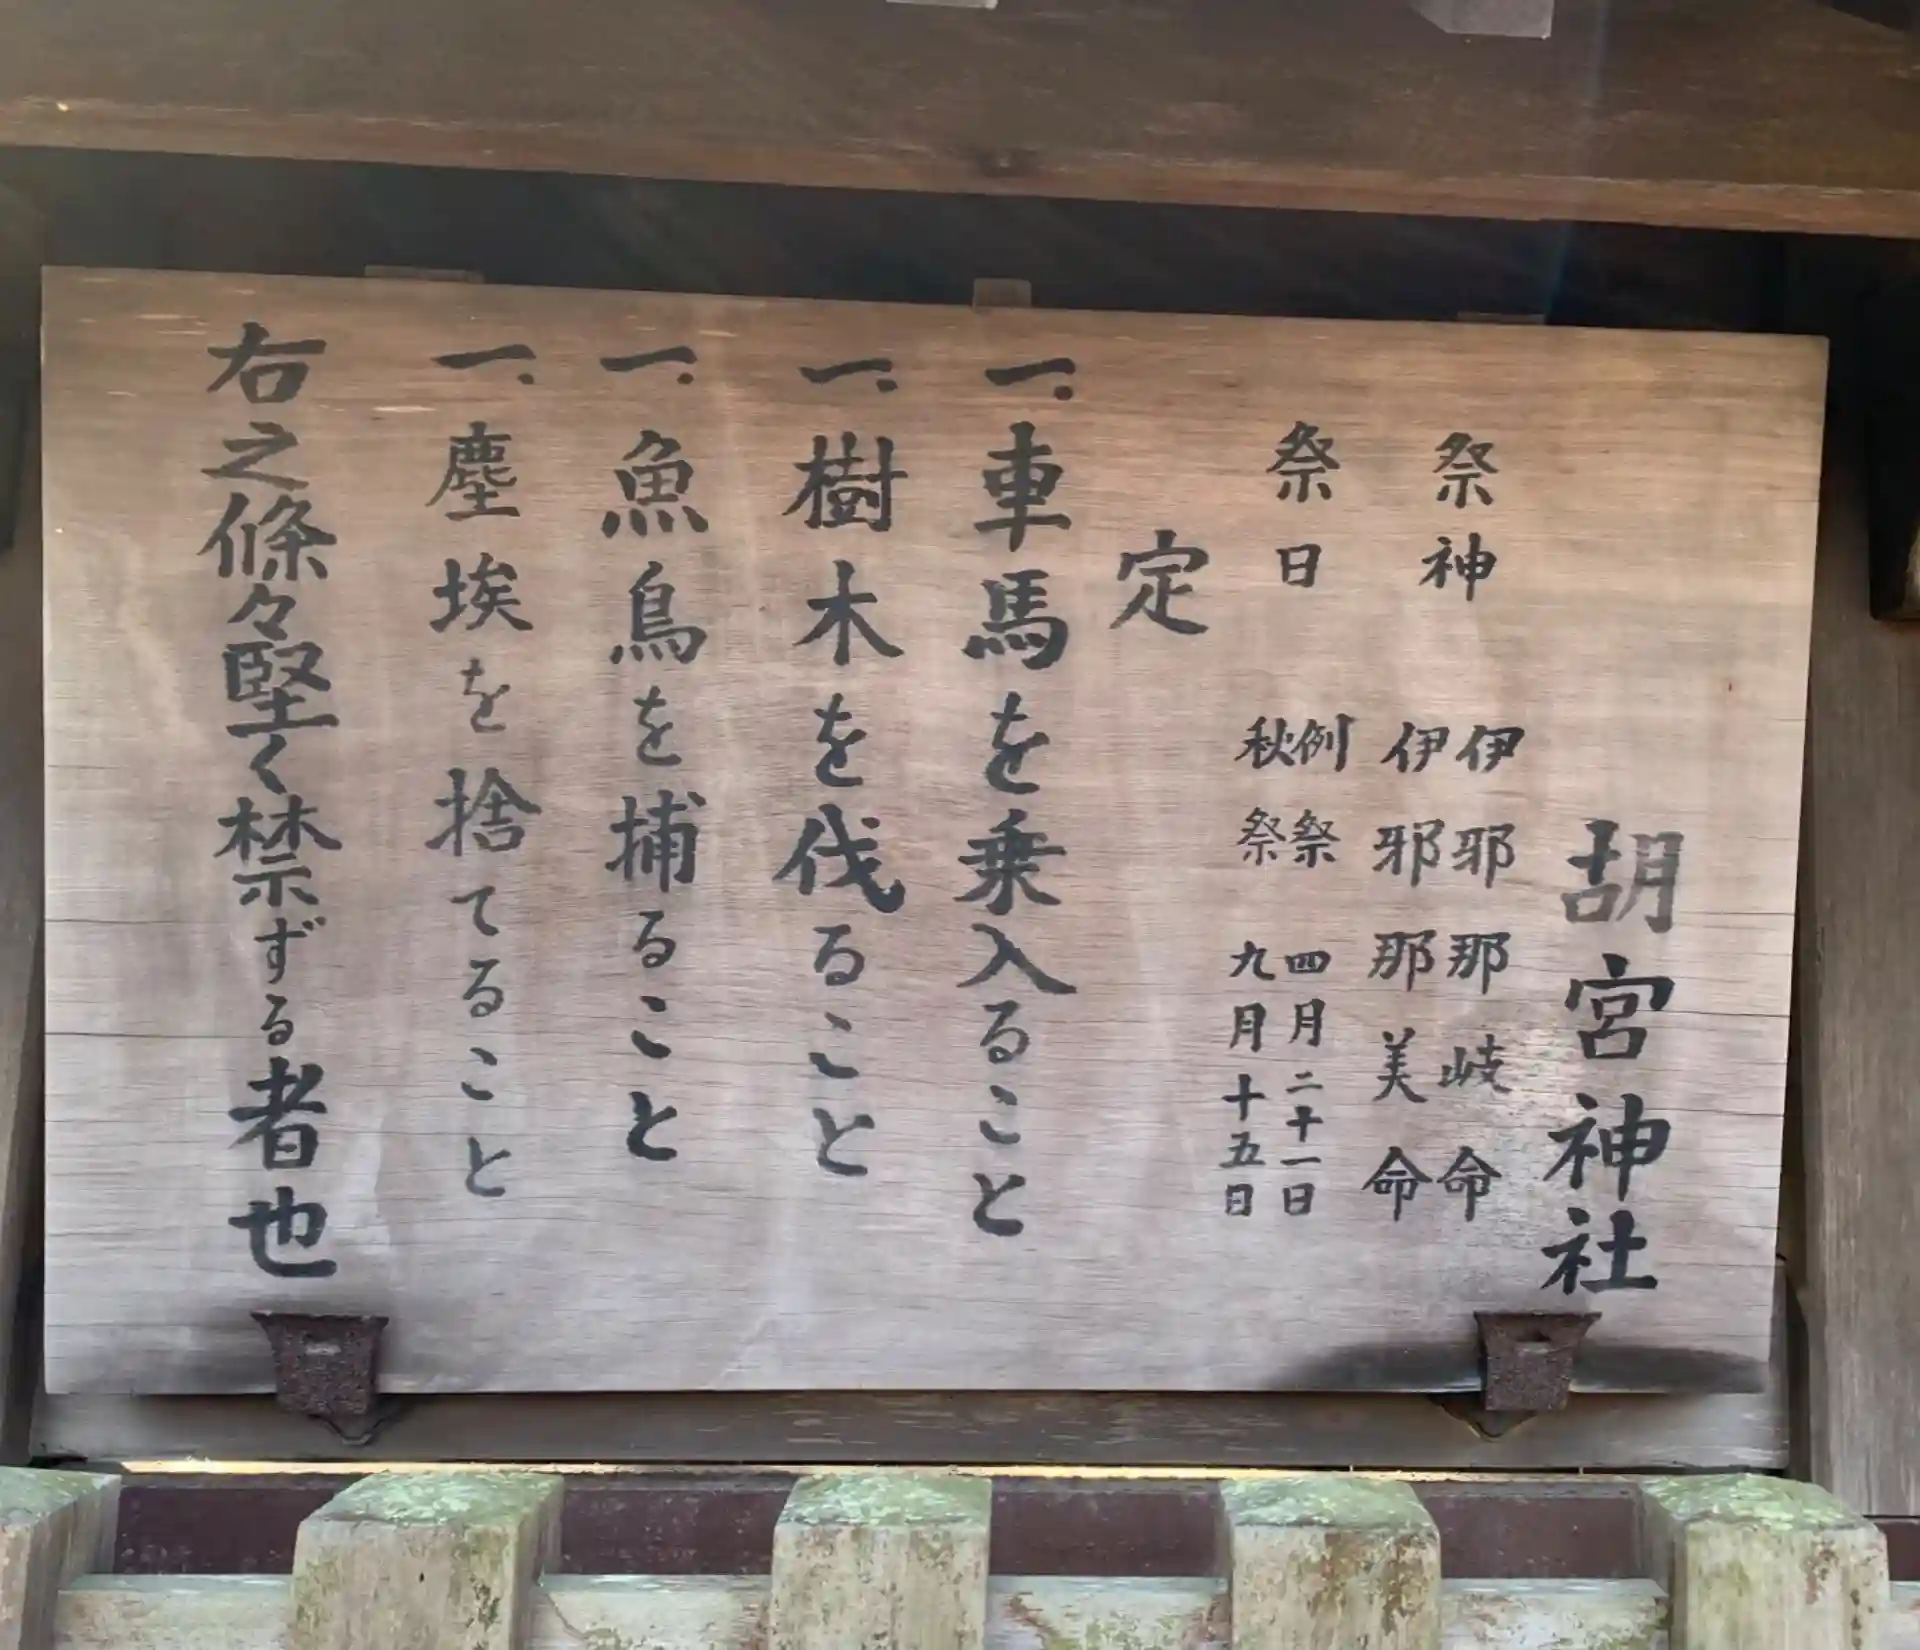 胡宮神社
祭神 伊邪那岐命
伊邪那美命
祭日 例祭 四月二十一日
秋祭 九月十五日
定
一.車馬を乗入ること
一.樹木を伐ること
一.魚鳥を捕ること
一.塵埃を捨てること
右之條々堅く禁ずる者也